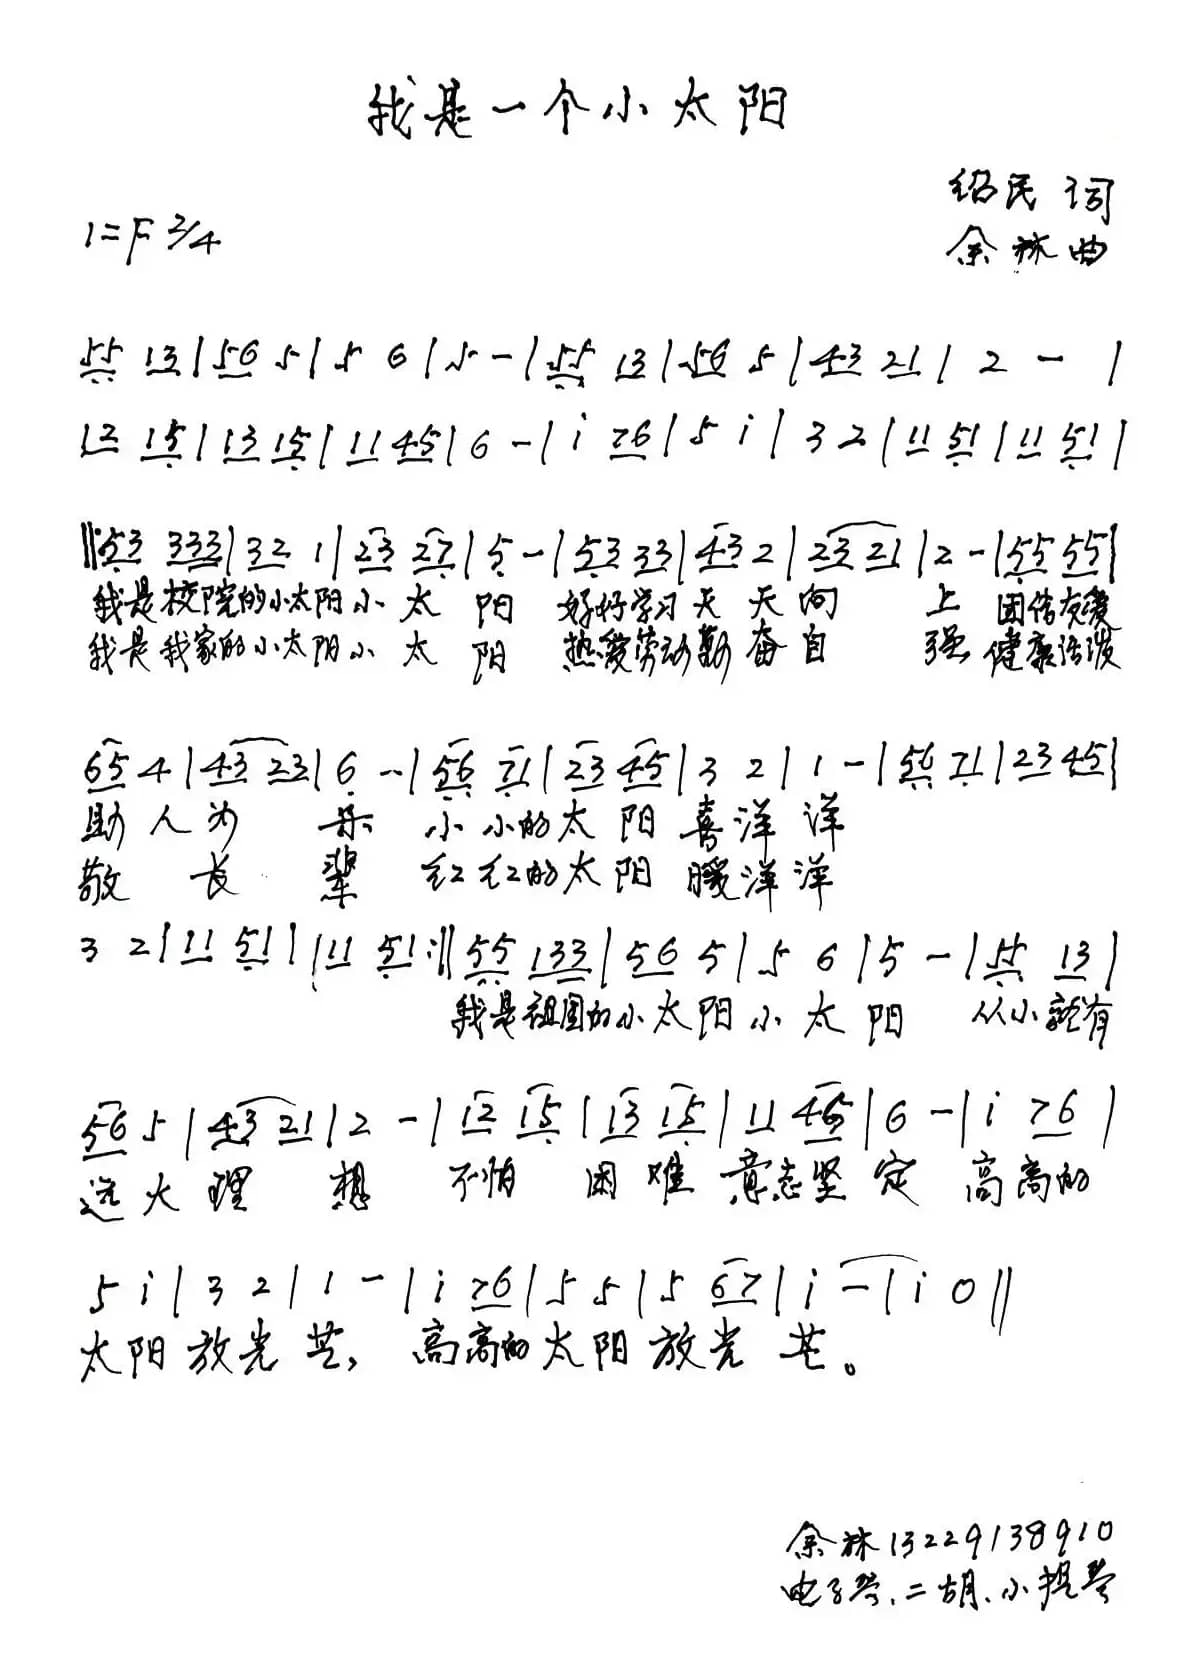 我是一个小太阳
绍民 词
1=F 2/4
余林曲
55 13|56 5|5 6|5 -|55 13|56 5|43 21|2 - |
12 15|13 15|11 45|6 -|i 76|5 i|3 2|11 51|11 51|
‖:53 333|32 1|23 27|5 -|53 33|43 2|23 21|2 -|55 55|
我是校院的小太阳小 太 阳 好好学习天 天 向 上 团结友爱
我是我家的小太阳小 太 阳 热爱劳动勤 奋 自 强 健康活泼
65 4|43 23|6 -|56 71|23 45|3 2|1 -|56 71|23 45|
助 人 为 乐 小 小的太 阳 喜洋 洋
敬 长 辈 红 红的太 阳 暖洋 洋
3 2|11 51||11 51:‖55 133|56 5|5 6|5 -|55 13|
我是祖国的小太阳小 太 阳 从小就有
56 5|43 21|2 -|12 15|13 15|11 45|6 -|i 76|
远大 理 想 不怕 困难 意志坚 定 高高的
5 i|3 2|1 -|i 76|5 5|5 67|i -|i 0‖
太阳 放光 芒, 高高的太阳 放光 芒。
余林13229138910
电子琴、二胡、小提琴